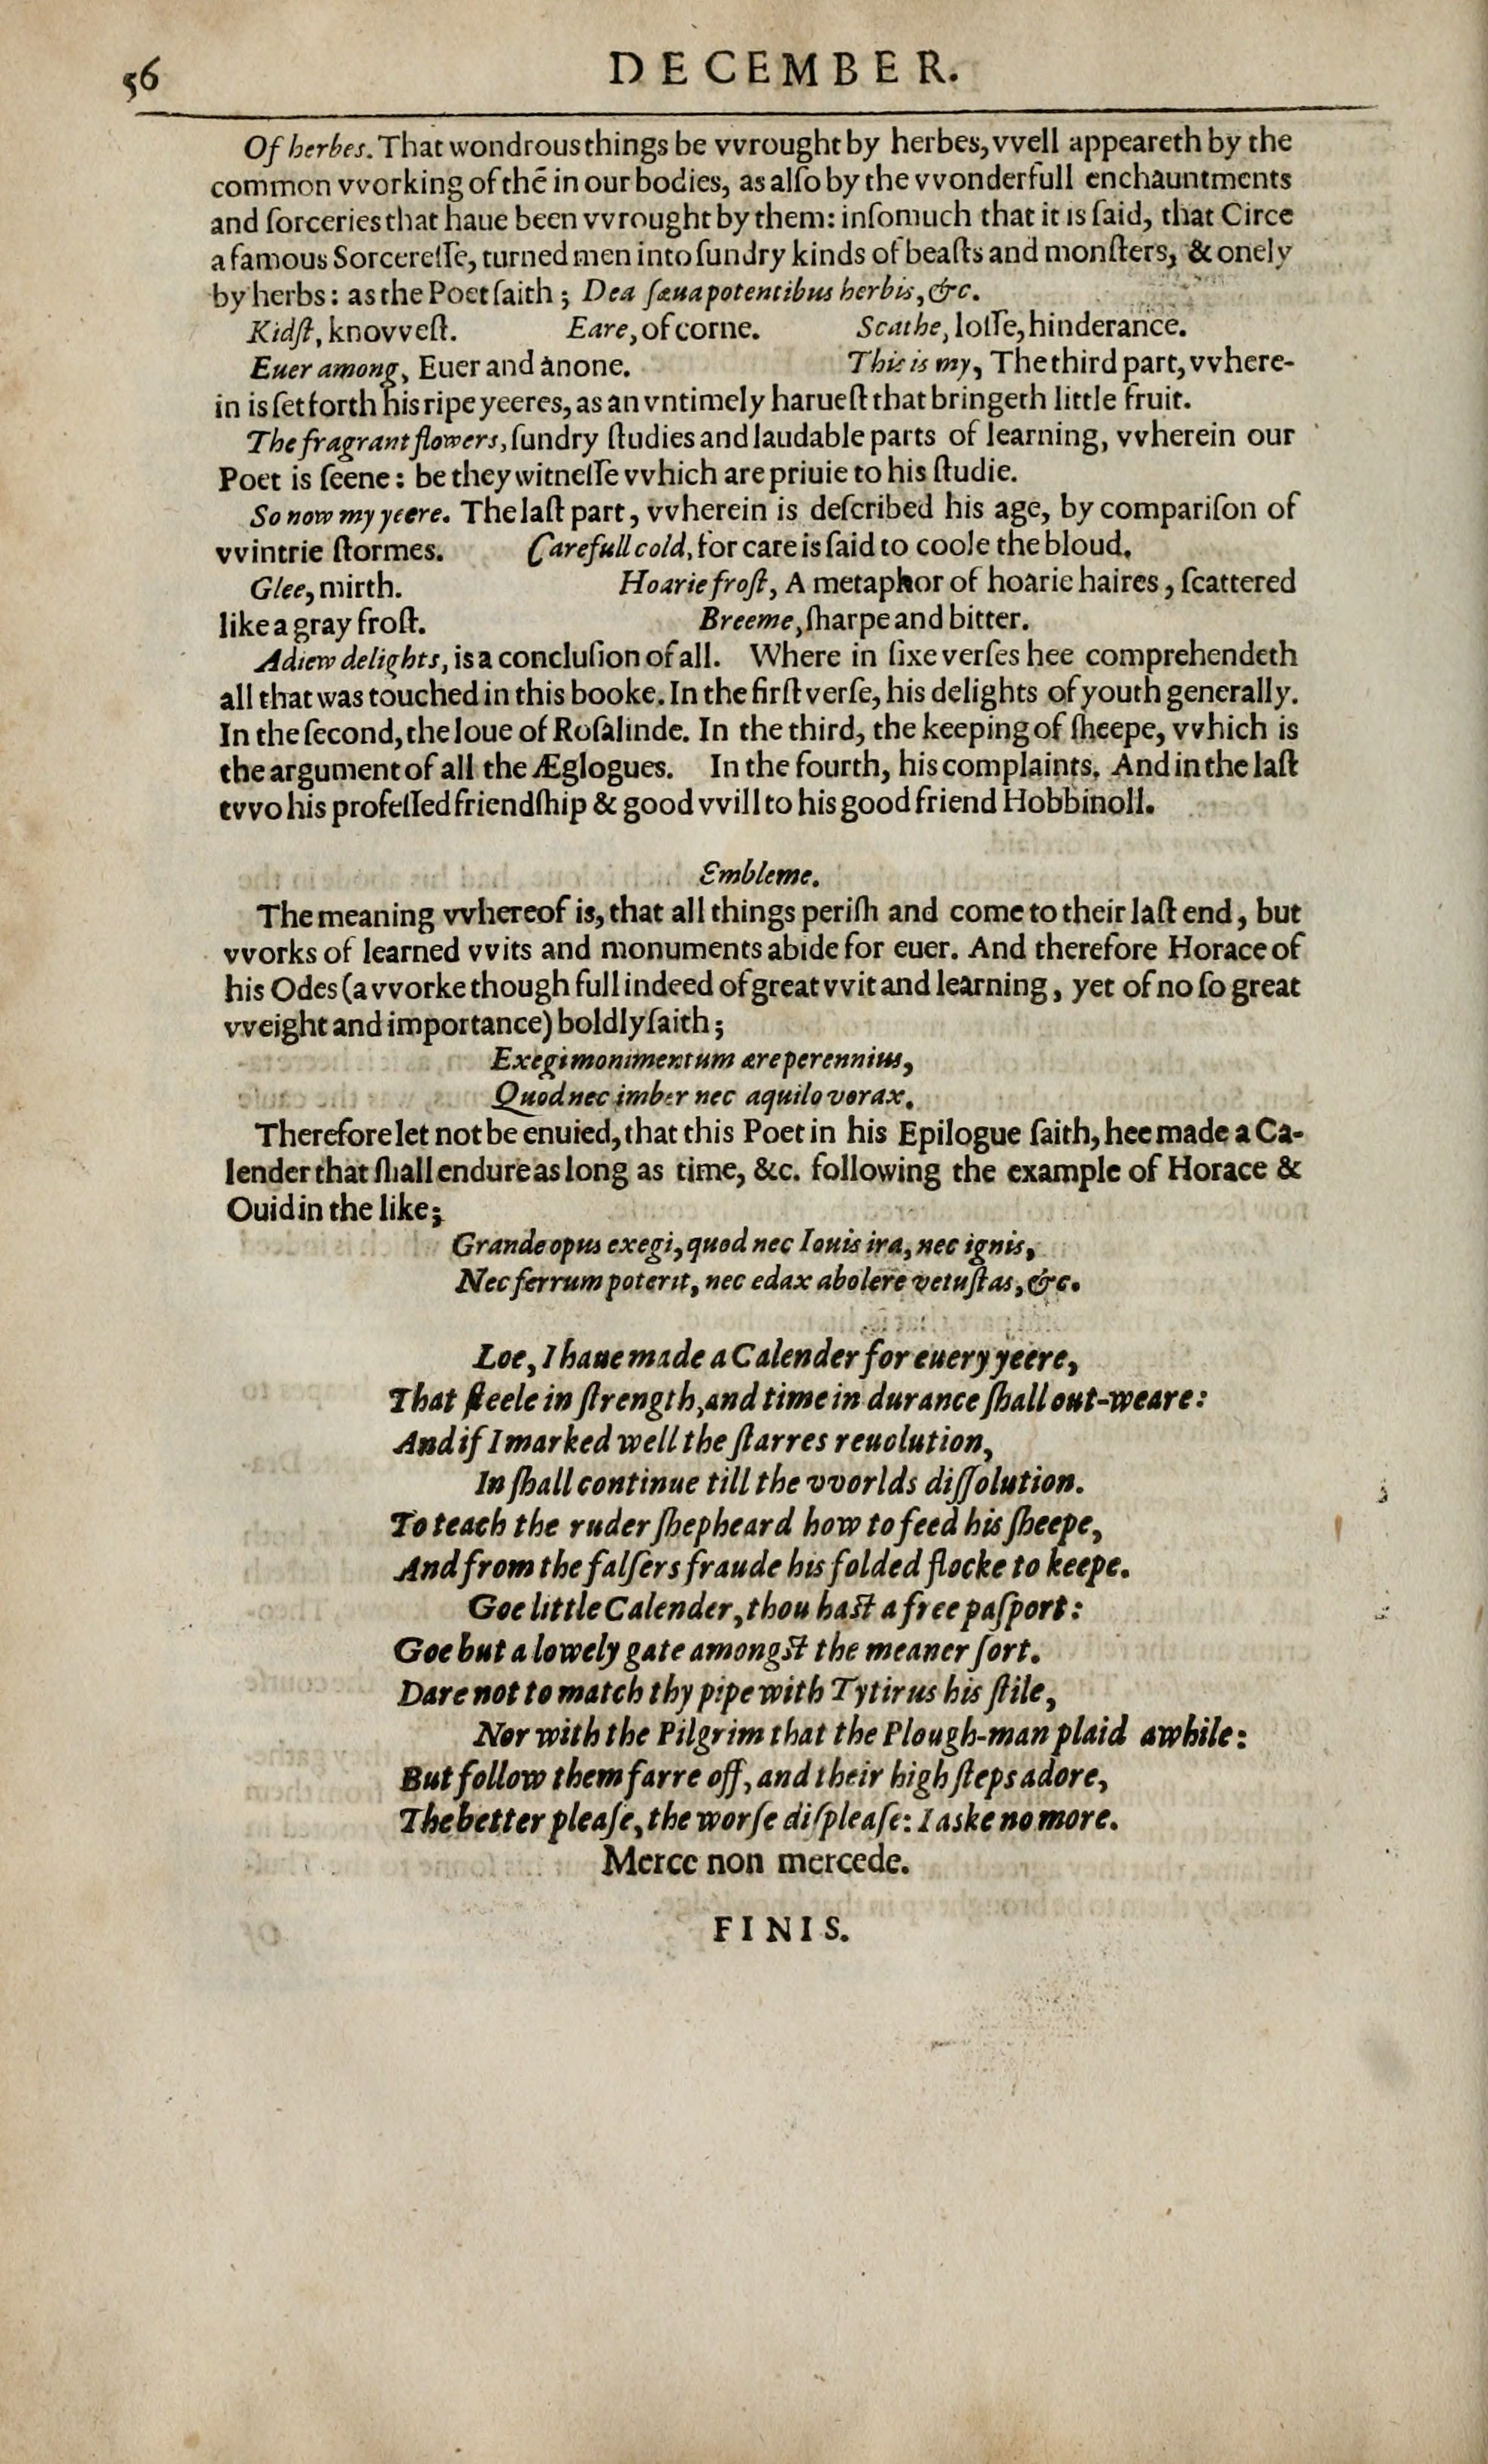 56
DECEMBER.
Of herbes. That wondrous things be vvrought by herbes, vvell appeareth by the
common vvorking of thē in our bodies, as alſo by the vvonderfull enchauntments
and ſorceries that haue been vvrought by them: inſomuch that it is ſaid, that Circe
a famous Sorcereſſe, turned men into ſundry kinds of beaſts and monſters, & onely
by herbs: as the Poet ſaith; Dea ſæua potentibus herbis, &c.
Kidſt, knovveſt. Eare, of corne. Scathe, loſſe, hinderance.
Euer among, Euer and anone. This is my, The third part, vvhere-
in is ſet forth his ripe yeeres, as an vntimely harueſt that bringeth little fruit.
The fragrant flowers, ſundry ſtudies and laudable parts of learning, vvherein our
Poet is ſeene: be they witneſſe vvhich are priuie to his ſtudie.
So now my yeere. The laſt part, vvherein is deſcribed his age, by compariſon of
vvintrie ſtormes. Carefull cold, for care is ſaid to coole the bloud.
Glee, mirth. Hoarie froſt, A metaphor of hoarie haires, ſcattered
like a gray froſt. Breeme, ſharpe and bitter.
Adiew delights, is a concluſion of all. Where in ſixe verſes hee comprehendeth
all that was touched in this booke. In the firſt verſe, his delights of youth generally.
In the ſecond, the loue of Roſalinde. In the third, the keeping of ſheepe, vvhich is
the argument of all the Æglogues. In the fourth, his complaints. And in the laſt
tvvo his profeſſed friendſhip & good vvill to his good friend Hobbinoll.
Embleme.
The meaning vvhereof is, that all things periſh and come to their laſt end, but
vvorks of learned vvits and monuments abide for euer. And therefore Horace of
his Odes (a vvorke though full indeed of great vvit and learning, yet of no ſo great
vveight and importance) boldly ſaith;
Exegi monimentum ære perennius,
Quod nec imber nec aquilo vorax.
Therefore let not be enuied, that this Poet in his Epilogue ſaith, hee made a Ca-
lender that ſhall endure as long as time, &c. following the example of Horace &
Ouid in the like;
Grande opus exegi, quod nec Iouis ira, nec ignis,
Nec ferrum poterit, nec edax abolere vetuſtas, &c.
Loe, I haue made a Calender for euery yeere,
That ſteele in ſtrength, and time in durance ſhall out-weare:
And if I marked well the ſtarres reuolution,
In ſhall continue till the vvorlds diſſolution.
To teach the ruder ſhepheard how to feed his ſheepe,
And from the falſers fraude his folded flocke to keepe.
Goe little Calender, thou haſt a free paſport:
Goe but a lowely gate amongſt the meaner ſort.
Dare not to match thy pipe with Tytirus his ſtile,
Nor with the Pilgrim that the Plough-man plaid awhile:
But follow them farre off, and their high ſteps adore,
The better pleaſe, the worſe diſpleaſe: I aske no more.
Merce non mercede.
FINIS.